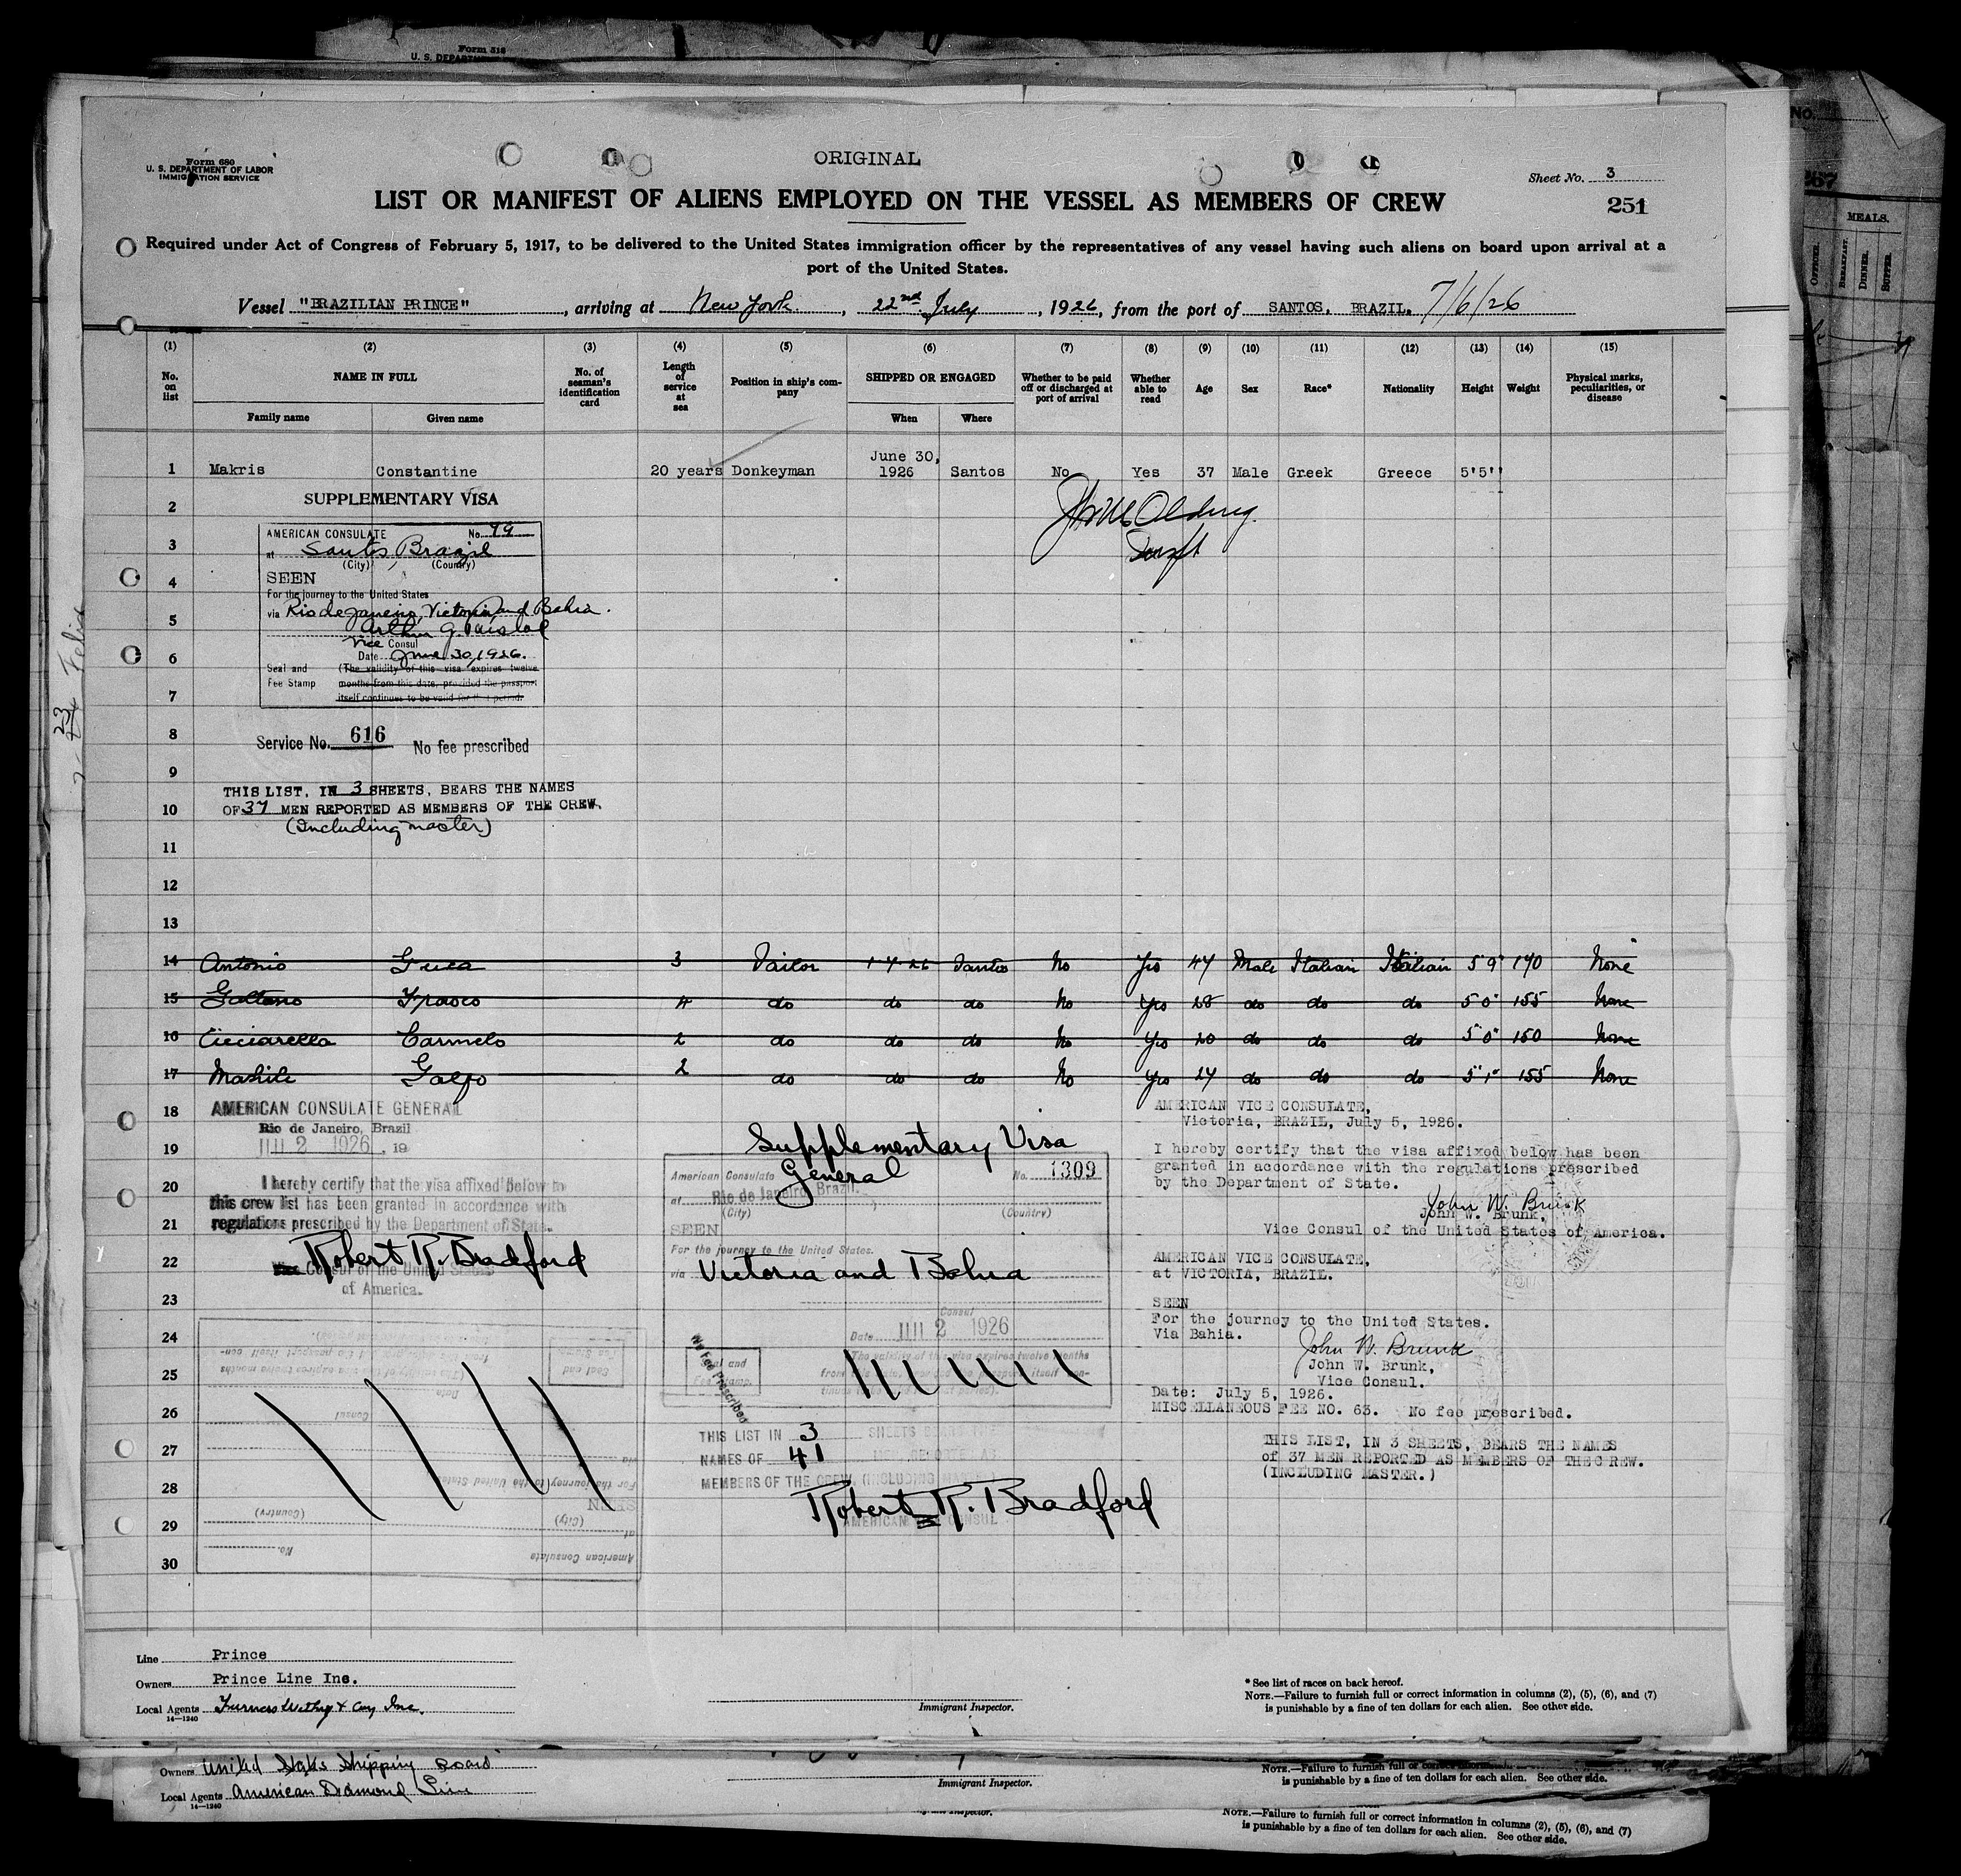 Form 516
U. S. DEPARTM
Form 680
U. S. DEPARTMENT OF LABOR
IMMIGRATION SERVICE
ORIGINAL
Sheet No. 3
251
LIST OR MANIFEST OF ALIENS EMPLOYED ON THE VESSEL AS MEMBERS OF CREW
Required under Act of Congress of February 5, 1917, to be delivered to the United States immigration officer by the representatives of any vessel having such aliens on board upon arrival at a
port of the United States.
Vessel "BRAZILIAN PRINCE", arriving at New York, 22nd July, 1926, from the port of SANTOS, BRAZIL. 7/6/26
(1) (2) (3) (4) (5) (6) (7) (8) (9) (10) (11) (12) (13) (14) (15)
No. on list
NAME IN FULL
Family name Given name
No. of seaman's identification card
Length of service at sea
Position in ship's company
SHIPPED OR ENGAGED
When Where
Whether to be paid off or discharged at port of arrival
Whether able to read
Age
Sex
Race*
Nationality
Height
Weight
Physical marks, peculiarities, or disease
1 Makris Constantine 20 years Donkeyman June 30, 1926 Santos No Yes 37 Male Greek Greece 5'5"
2
3
4
5
6
7
8
9
10
11
12
13
SUPPLEMENTARY VISA
AMERICAN CONSULATE No. 99
at Santos, Brazil
(City) (Country)
SEEN
For the journey to the United States
via Rio de Janeiro, Victoria and Bahia.
Arthur G.
Vice Consul
Date June 30, 1926.
Seal and (The validity of this visa expires twelve
Fee Stamp months from this date, provided the passport
itself continues to be valid for that period).
Service No. 616 No fee prescribed
THIS LIST, IN 3 SHEETS, BEARS THE NAMES
OF 37 MEN REPORTED AS MEMBERS OF THE CREW.
(Including master)
14 Antonio 3 Sailor 1-7-26 Santos No Yes 47 Male Italian Italian 5'9" 170 None
15 Gaetano 4 do do do No Yes 28 do do do 5'0" 155 None
16 Cicciarella Carmelo 2 do do do No Yes 20 do do do 5'0" 150 None
17 2 do do do No Yes 24 do do do 5'1" 155 None
18
19
20
21
22
23
24
25
26
27
28
29
30
AMERICAN CONSULATE GENERAL
Rio de Janeiro, Brazil
JUL 2 1926, 19
I hereby certify that the visa affixed below to
this crew list has been granted in accordance with
regulations prescribed by the Department of State.
Robert R. Bradford
Vice Consul of the United States
of America.
American Consulate No.
at
(City) (Country)
SEEN
For the journey to the United States
via
Consul
Date
Supplementary Visa
American Consulate General No. 1309
at Rio de Janeiro, Brazil.
(City) (Country)
SEEN
For the journey to the United States.
via Victoria and Bahia
Consul
Date JUL 2 1926
Seal and
Fee Stamp.
No Fee Prescribed
The validity of this visa expires twelve months
THIS LIST IN 3 SHEETS BEARS THE
NAMES OF 41 MEN REPORTED AS
MEMBERS OF THE CREW (INCLUDING MASTER)
Robert R. Bradford
AMERICAN CONSUL
AMERICAN VICE CONSULATE,
Victoria, BRAZIL, July 5, 1926.
I hereby certify that the visa affixed below has been
granted in accordance with the regulations prescribed
by the Department of State.
John W. Brunk
John W. Brunk,
Vice Consul of the United States of America.
AMERICAN VICE CONSULATE,
at VICTORIA, BRAZIL.
SEEN
For the journey to the United States.
Via Bahia.
John W. Brunk
John W. Brunk,
Vice Consul.
Date: July 5, 1926.
MISCELLANEOUS FEE NO. 63. No fee prescribed.
THIS LIST, IN 3 SHEETS, BEARS THE NAMES
of 37 MEN REPORTED AS MEMBERS OF THE CREW.
(INCLUDING MASTER.)
Line Prince
Owners Prince Line Inc.
Local Agents Furness Withy & Coy Inc.
14—1240
Immigrant Inspector.
* See list of races on back hereof.
NOTE.—Failure to furnish full or correct information in columns (2), (5), (6), and (7)
is punishable by a fine of ten dollars for each alien. See other side.
Owners United States Shipping Board
Local Agents American Diamond Line
14—1240
Immigrant Inspector.
NOTE.—Failure to furnish full or correct
is punishable by a fine of ten dollars for each alien. See other side.
NOTE.—Failure to furnish full or correct information in columns (2), (5), (6), and (7)
is punishable by a fine of ten dollars for each alien. See other side.
No.
267
MEALS.
OFFICER.
BREAKFAST.
DINNER.
SUPPER.